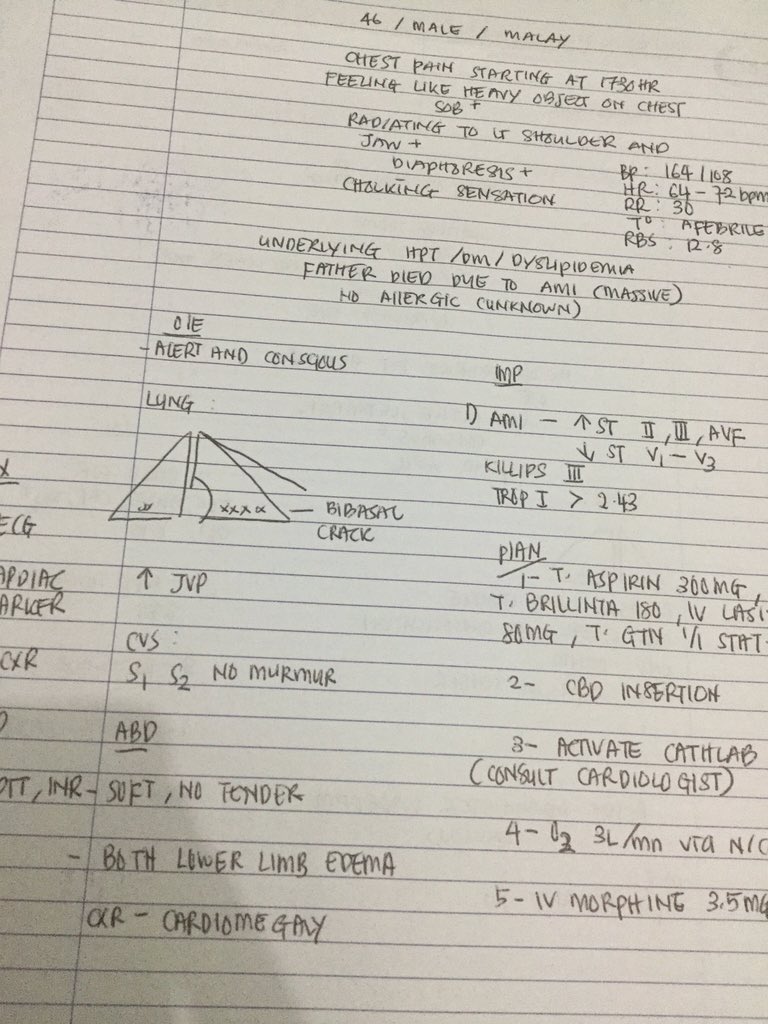 46 / MALE / MALAY
CHEST PAIN STARTING AT 1730HR
FEELING LIKE HEAVY OBJECT ON CHEST
SOB +
RADIATING TO LT SHOULDER AND
JAW +
DIAPHORESIS +
CHOLKING SENSATION
BP: 164/108
HR: 64-72bpm
RR: 30
T°: AFEBRILE
RBS: 12.8
UNDERLYING HPT /DM/ DYSLIPIDEMIA
FATHER DIED DUE TO AMI (MASSIVE)
NO ALLERGIC (UNKNOWN)
O/E
- ALERT AND CONSCIOUS
LUNG :
xxxx
— BIBASAL
CRACK
ECG
CXR
↑ JVP
CVS :
S1 S2 NO MURMUR
ABD
PTT, INR - SOFT, NO TENDER
- BOTH LOWER LIMB EDEMA
CXR - CARDIOMEGALY
IMP
1) AMI - ↑ ST II, III, AVF
↓ ST V1 - V3
KILLIPS III
TROP I > 2.43
PLAN
1- T. ASPIRIN 300MG,
T. BRILLINTA 180, IV LASI
80MG, T. GTN 1/1 STAT
2- CBD INSERTION
3- ACTIVATE CATHLAB
(CONSULT CARDIOLOGIST)
4- O2 3L/min via N/C
5- IV MORPHINE 3.5MG